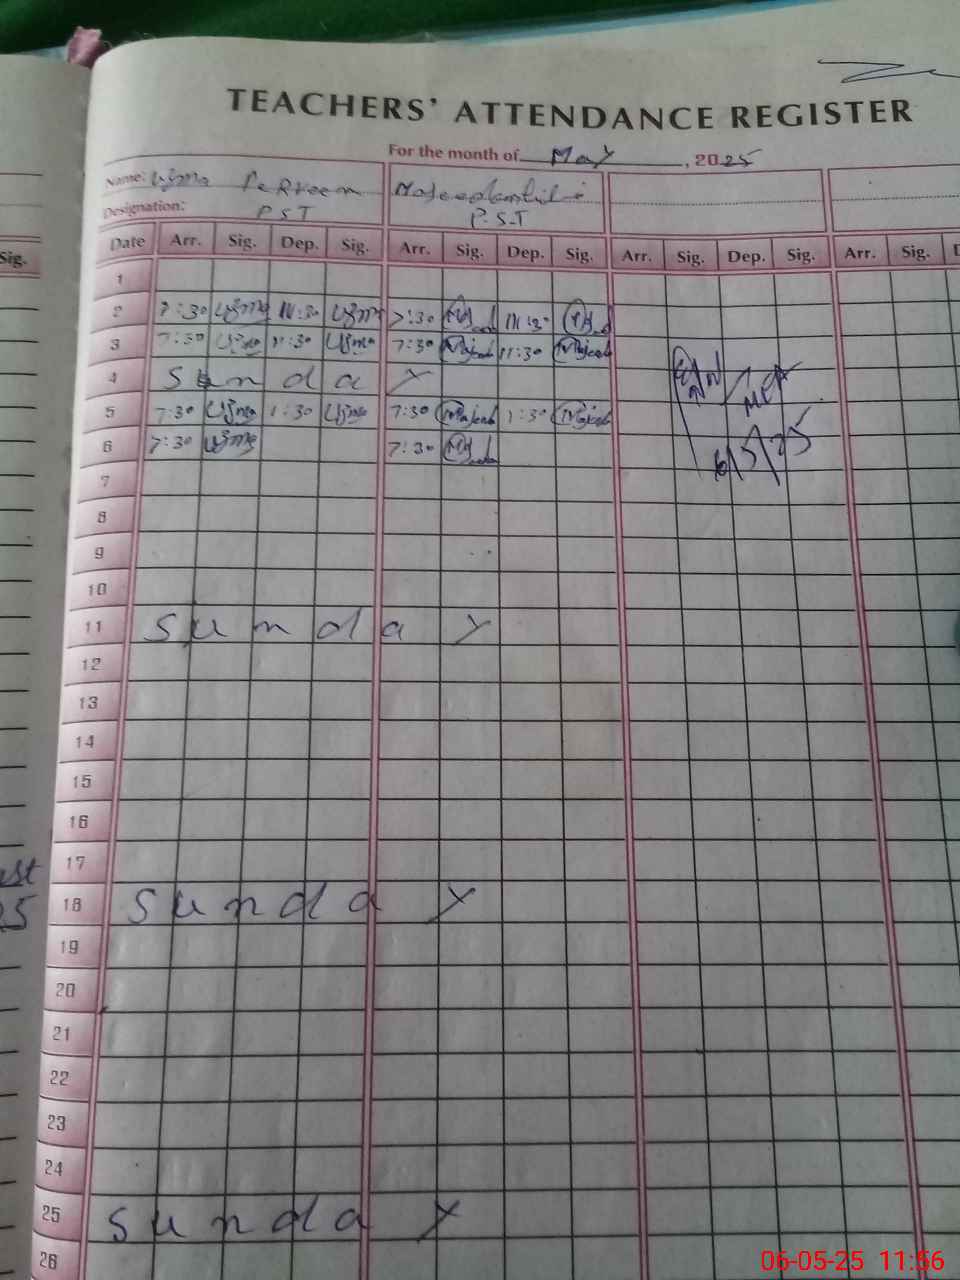 TEACHERS' ATTENDANCE REGISTER
For the month of May, 2025
Name: Uzma Perveen
Designation: PST P.S.T
Sig. Date Arr. Sig. Dep. Sig. Arr. Sig. Dep. Sig. Arr. Sig. Dep. Sig. Arr. Sig. D
1
2 7:30 Uzma 11:30 Uzma 7:30 11:30
3 7:30 Uzma 11:30 Uzma 7:30 Majeed 11:30 Majeed
4 Sunday
5 7:30 Uzma 1:30 Uzma 7:30 Majeed 1:30 Majeed
6 7:30 Uzma 7:30
6/5/25
7
8
9
10
11 Sunday
12
13
14
15
16
17
18 Sunday
19
20
21
22
23
24
25 Sunday
26
06-05-25 11:56